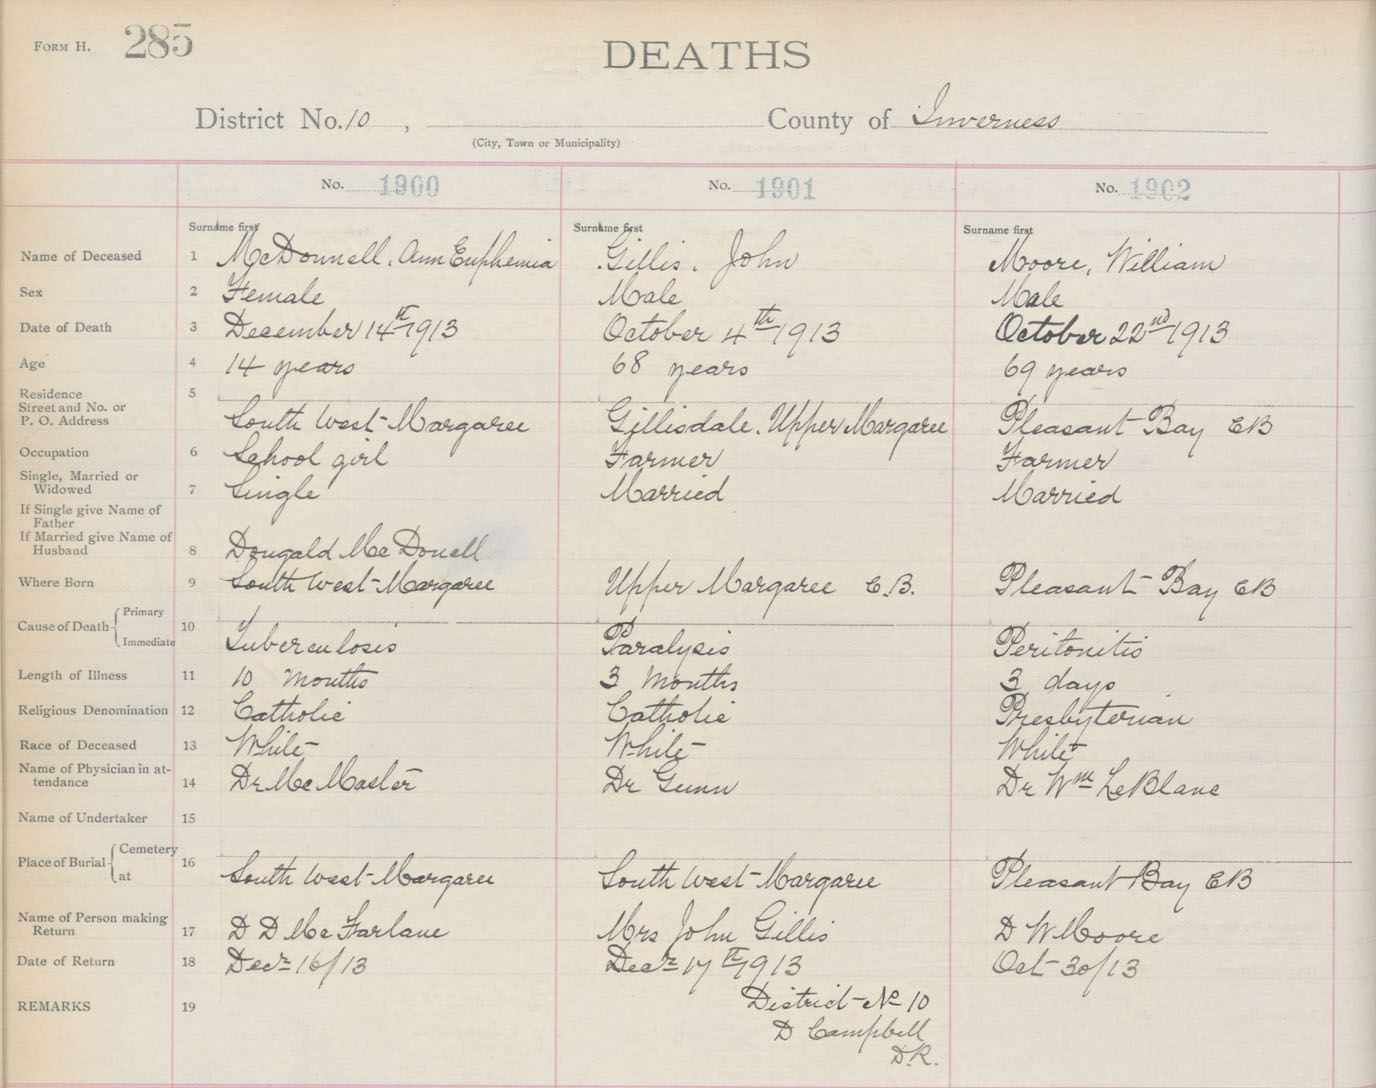 FORM H. 285
DEATHS
District No. 10 , County of Inverness
(City, Town or Municipality)
No. 1900 No. 1901 No. 1902
Surname first Surname first Surname first
Name of Deceased 1 McDonnell, Ann Euphemia Gillis, John Moore, William
Sex 2 Female Male Male
Date of Death 3 December 14th 1913 October 4th 1913 October 22nd 1913
Age 4 14 years 68 years 69 years
Residence 5
Street and No. or
P. O. Address South West Margaree Gillisdale, Upper Margaree Pleasant Bay CB
Occupation 6 School girl Farmer Farmer
Single, Married or
Widowed 7 Single Married Married
If Single give Name of
Father
If Married give Name of
Husband 8 Dougald McDonell
Where Born 9 South West Margaree Upper Margaree C.B. Pleasant Bay CB
Cause of Death Primary
10
Immediate Tuberculosis Paralysis Peritonitis
Length of Illness 11 10 Months 3 Months 3 days
Religious Denomination 12 Catholic Catholic Presbyterian
Race of Deceased 13 White White White
Name of Physician in at-
tendance 14 Dr McMaster Dr Gunn Dr Wm LeBlanc
Name of Undertaker 15
Place of Burial Cemetery
16
at South West Margaree South West Margaree Pleasant Bay CB
Name of Person making
Return 17 D D McFarlane Mrs John Gillis D W Moore
Date of Return 18 Decr 16/13 Decr 17th 1913 Oct 30/13
REMARKS 19 District No 10
D Campbell
D.R.